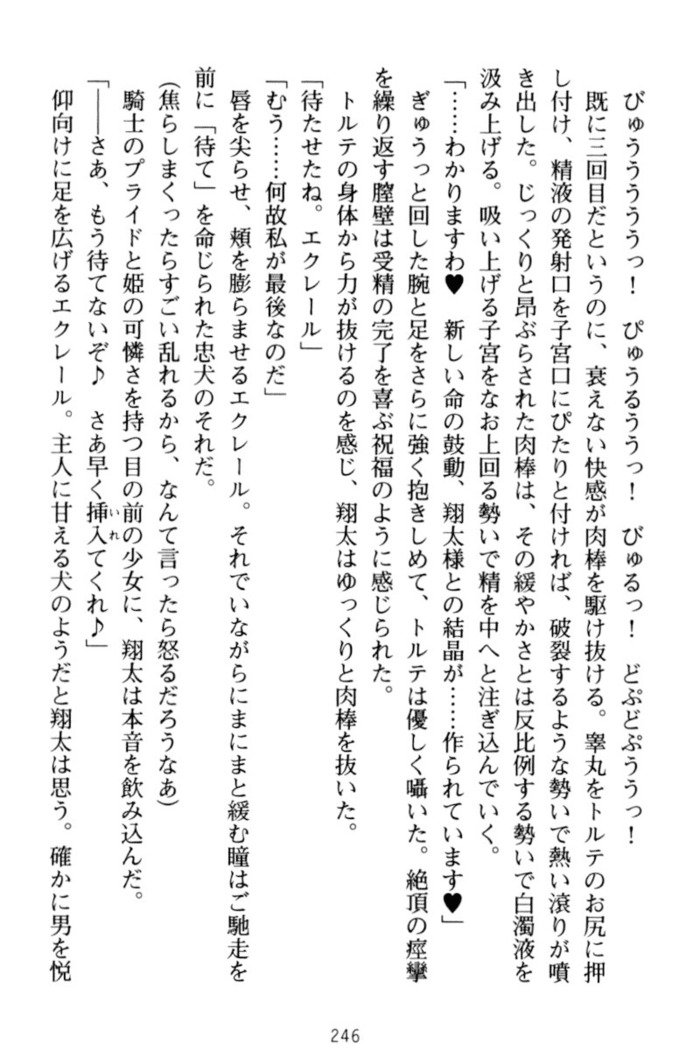 びゅうううううっ！　ぴゅうるううっ！　びゅるっ！　どぷどぷううっ！
既に三回目だというのに、衰えない快感が肉棒を駆け抜ける。睾丸をトルテのお尻に押
し付け、精液の発射口を子宮口にぴたりと付ければ、破裂するような勢いで熱い滾りが噴
き出した。じっくりと昂ぶらされた肉棒は、その緩やかさとは反比例する勢いで白濁液を
汲み上げる。吸い上げる子宮をなお上回る勢いで精を中へと注ぎ込んでいく。
「……わかりますわ♥　新しい命の鼓動、翔太様との結晶が……作られています♥」
ぎゅうっと回した腕と足をさらに強く抱きしめて、トルテは優しく囁いた。絶頂の痙攣
を繰り返す膣壁は受精の完了を喜ぶ祝福のように感じられた。
トルテの身体から力が抜けるのを感じ、翔太はゆっくりと肉棒を抜いた。
「待たせたね。エクレール」
「むう……何故私が最後なのだ」
唇を尖らせ、頬を膨らませるエクレール。それでいながらにまにまと緩む瞳はご馳走を
前に「待て」を命じられた忠犬のそれだ。
(焦らしまくったらすごい乱れるから、なんて言ったら怒るだろうなあ)
騎士のプライドと姫の可憐さを持つ目の前の少女に、翔太は本音を飲み込んだ。
「――さあ、もう待てないぞ♪　さあ早く挿入いれてくれ♪」
仰向けに足を広げるエクレール。主人に甘える犬のようだと翔太は思う。確かに男を悦
246